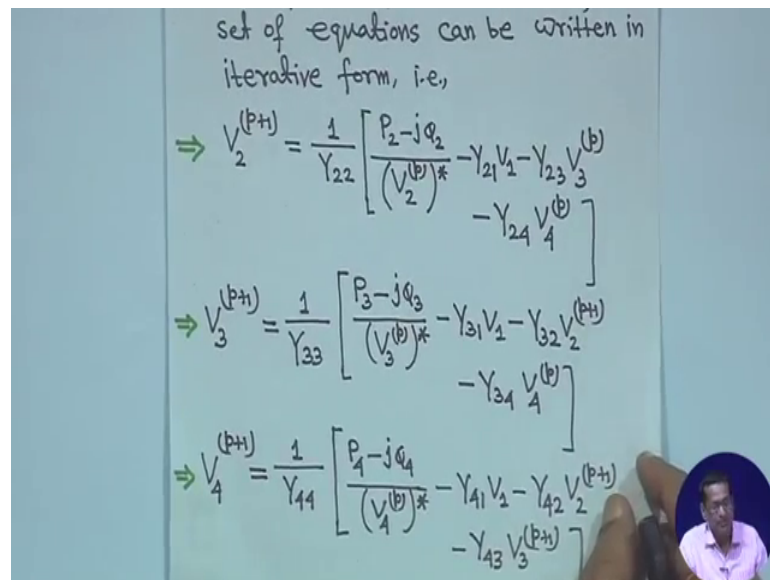 set of equations can be written in
iterative form, i.e.,
⇒ V₂^(p+1) = 1/Y₂₂ [ (P₂ - jQ₂)/(V₂^(p))* - Y₂₁V₁ - Y₂₃V₃^(p)
- Y₂₄ V₄^(p) ]
⇒ V₃^(p+1) = 1/Y₃₃ [ (P₃ - jQ₃)/(V₃^(p))* - Y₃₁V₁ - Y₃₂V₂^(p+1)
- Y₃₄ V₄^(p) ]
⇒ V₄^(p+1) = 1/Y₄₄ [ (P₄ - jQ₄)/(V₄^(p))* - Y₄₁V₁ - Y₄₂V₂^(p+1)
- Y₄₃ V₃^(p+1) ]